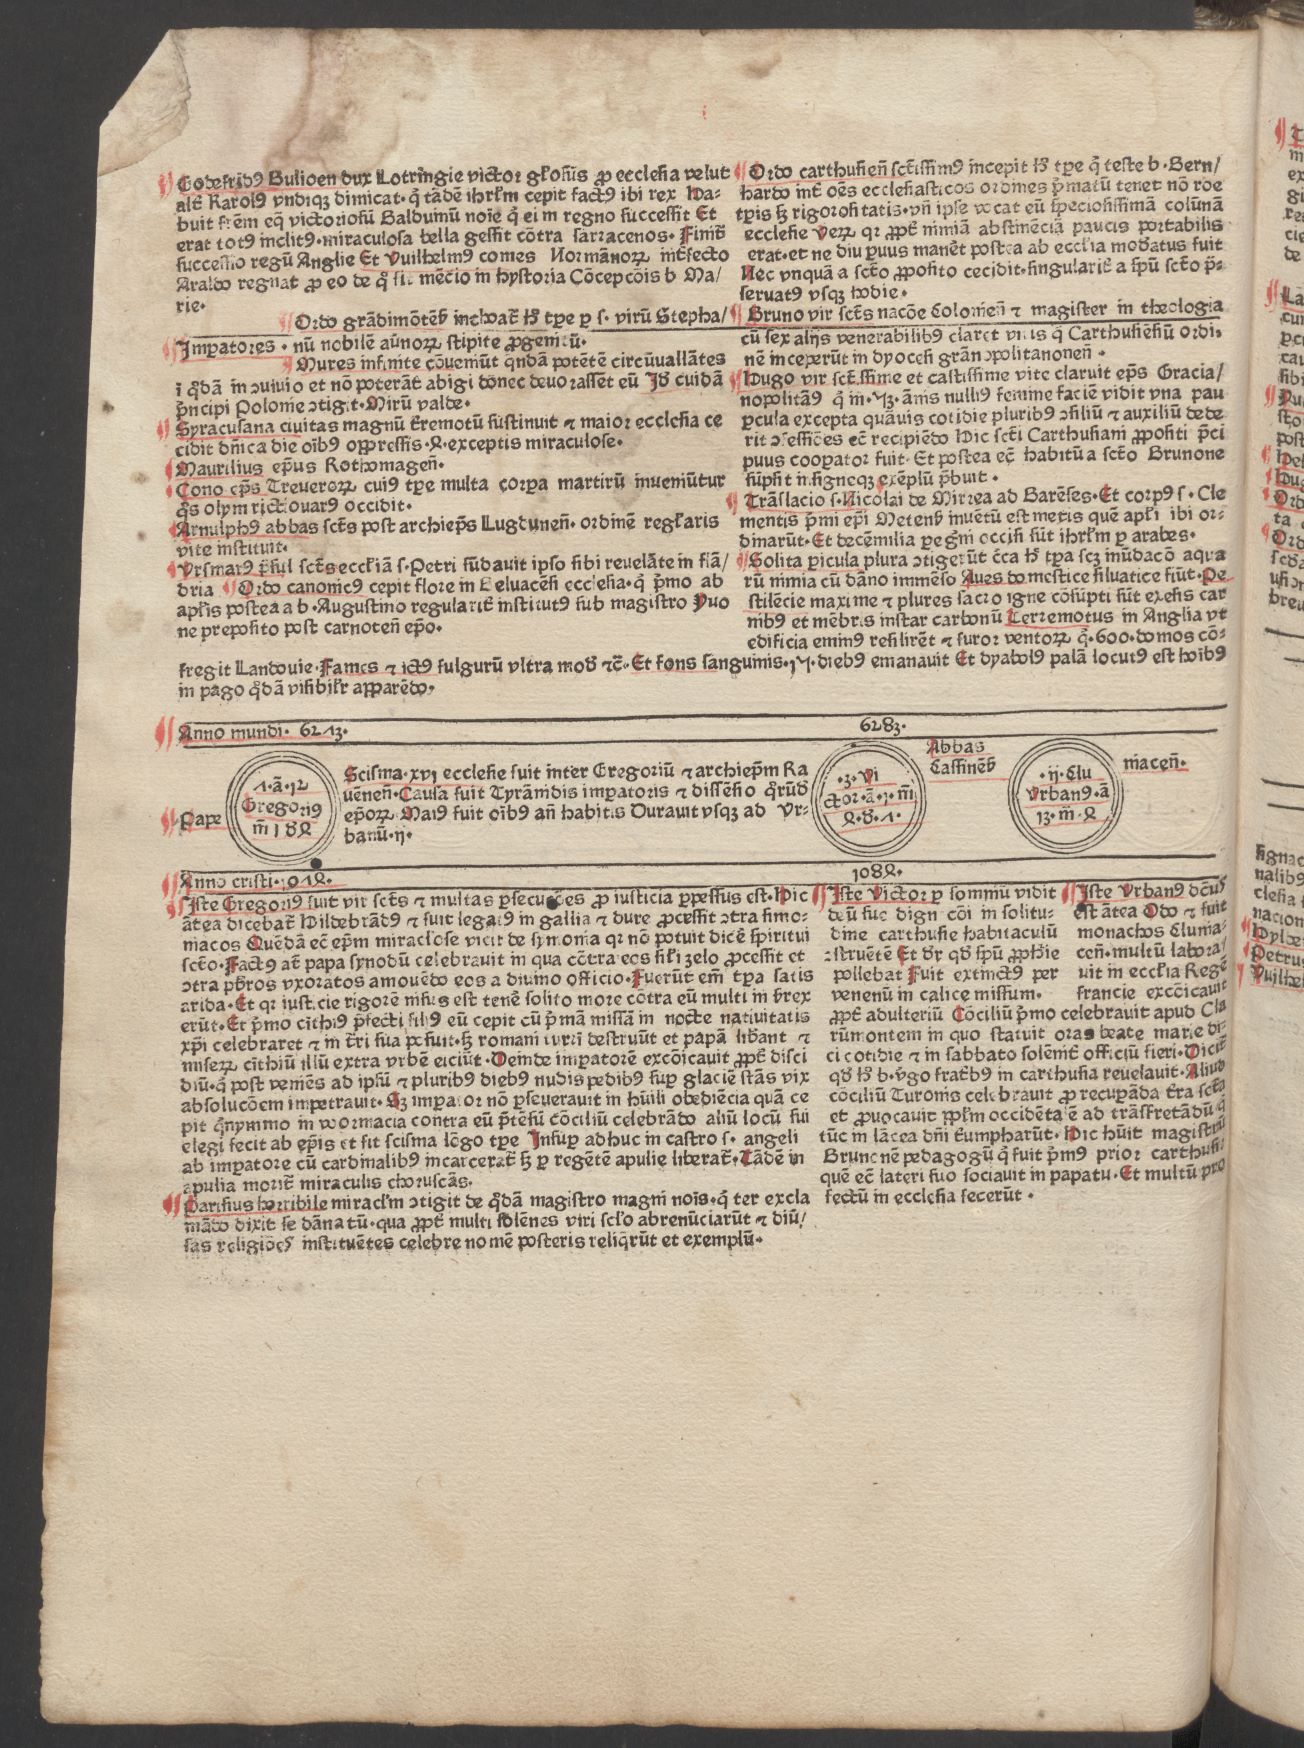 Godefrid9 Bulioen dux Lotrīngie victor gl'osus ꝓ ecclesia velut
alt̄ Karol9 vndiqꝫ dimicat. q̄ tādē ihrl'm cepit fact9 ibi rex Ha-
buit frēm eq̄ victoriosū Balduinū noīe q̄ ei in regno successit Et
erat tot9 inclit9. miraculosa bella gessit cōtra sarracenos. Finit̄
successio regū Anglie Et Vuilhelm9 comes Normānorꝝ int̄fecto
Araldo regnat ꝓ eo de q̄ fit mēcio in hystoria Cōcepcōis b Ma/
rie.
Ordo grādimōtēs̄ inchoat̄ h̄ tꝑe ꝑ s. virū Stepha/
Imꝑatores. nū nobilē aūnorꝝ stipite ꝓgenitū.
Mures infinite cōuenūt q̄ndā potētē circūuallātes
ī q̄dā in ɔuiuio et nō poterāt abigi donec deuorassēt eū Id̄ cuidā
p̄ncipi Polonie ɔtigit. Mirū valde.
Syracusana ciuitas magnū t̄remotū sustinuit et maior ecclesia ce
cidit dn̄ica die oīb9 oppressis. 2. exceptis miraculose.
Maurilius ep̄us Rothomagen̄.
Cono ep̄s Treuerorꝝ cui9 tꝑe multa corꝑa martirū inueniūtur
q̄s olym rictiouar9 occidit.
Arnulph9 abbas sct̄s post archiep̄s Lugdunen̄. ordinē regl'aris
vite instituit.
Vrsmar9 p̄sul sct̄s eccl'iā s. Petri fūdauit ipso sibi reuelāte in flā/
dria Ordo canonic9 cepit flore in Beluacēsi ecclesia. q̄ p̄mo ab
apl'is postea a b. Augustino regularit̄ institut9 sub magistro Yuo
ne preposito post carnoten̄ ep̄o.
Ordo carthusien̄ sct̄issim9 incepit h̄ tꝑe q̄ teste b. Bern/
hardo int̄ oēs ecclesiasticos ordines p̄matū tenet nō rōe
tꝑis sꝫ rigorositatis. vn̄ ipse vocat eū speciosissimā colūnā
ecclesie Verꝝ qr ꝓpt̄ nimiā abstinēciā paucis portabilis
erat. et ne diu ꝑuus manēt postea ab eccl'ia moderatus fuit
Nec vnquā a sct̄o ꝓposito cecidit. singularit̄ a spū sct̄o p̄-
seruat9 vsqꝫ hodie.
Bruno vir sct̄s nacōe Colonien̄ et magister in theologia
cū sex alijs venerabilib9 claret viris q̄ Carthusiēsiū ordi.
nē inceperūt in dyocesi grānɔpolitanonen̄.
Hugo vir sct̄issime et castissime vite claruit ep̄s Gracia/
nopolitā9 q̄ in. 43. ānis nulli9 femine faciē vidit vna pau
ꝑcula excepta quāuis cotidie plurib9 ɔsiliū et auxiliū dede
rit ɔfessiōēs ec̄ recipiēdo Hic sct̄i Carthusiani ꝓpositi p̄ci
puus cooꝑator fuit. Et postea ec̄ habitū a sct̄o Brunone
sūpsit insigneqꝫ exēplū p̄buit.
Trāslacio s. Nicolai de Mirrea ad Barēses. Et corp9 s. Cle
mentis p̄mi ep̄i Metens̄ inuētū est metis quē apl'i ibi or-
dinarūt. Et decēmilia ꝑegn̄i occisi sūt ihrl'm ꝑ arabes.
Solita ꝑicula plura ɔtigerūt c̄ca h̄ tꝑa scꝫ inūdacō aqua
rū nimia cū dāno immēso Aues domestice siluatice fiūt. Pe
stilēcie maxime et plures sacro igne cōsūpti sūt exesis car
nib9 et mēbris instar carbonū Terremotus in Anglia vt
edificia emin9 resilirēt et furor ventorꝝ q̄. 600. domos cō-
fregit Landouie. Fames et ict9 fulgurū vltra mod̄ etc̄. Et fons sanguinis. 14. dieb9 emanauit Et dyabol9 palā locut9 est hoīb9
in pago q̄dā visibil'r apparēdo.
Anno mundi. 6273. 6283.
Pape
1. ā. 12
Gregori9
m̄ 1 d̄ 2
Scisma. xvj ecclesie fuit inter Gregoriū et archiep̄m Ra
uēnen̄. Causa fuit Tyrānidis imꝑatoris et dissēsio q̄rūd̄
ep̄orꝝ. Mai9 fuit oīb9 an̄ habitis Durauit vsqꝫ ad Vr-
banū. ij.
.3. Vi
ctor. ā. 1. m̄
2. d̄. 1.
Abbas
Cassinēs̄
.ij. Clu
Vrban9. ā
13. m̄. 2
niacen̄.
Anno cristi. 1072. 1082.
Iste Gregori9 fuit vir sct̄s et multas ꝑsecuciōes ꝓ iusticia ꝑpessus est. Hic
ātea dicebat̄ Hildebrād9 et fuit legat9 in gallia et dure ꝓcessit ɔtra simo-
niacos Quēdā ec̄ ep̄m miracl'ose vicit de symonia qr nō potuit dicē spiritui
sct̄o. Fact9 at̄ papa synodū celebrauit in qua cōtra eos sil'i zelo ꝓcessit et
ɔtra pb̄ros vxoratos amouēdo eos a diuino officio. Fuerūt em̄ tꝑa satis
arida. Et qr iusticie rigorē nisus est tenē solito more cōtra eū multi in brex
erūt. Et p̄mo cīthi9 p̄fecti fili9 eū cepit cū p̄mā missā in nocte natiuitatis
xp̄i celebraret et in t̄ri sua posuit. sꝫ romani turrī destruūt et papā libāt et
miserꝝ cīthiū illū extra vrbē eiciūt. Deinde imꝑatorē excōicauit ꝓpt̄ disci
diū. q̄ post veniēs ad ipsū et plurib9 dieb9 nudis pedib9 suꝑ glaciē stās vix
absolucōem impetrauit. Sꝫ imꝑator nō ꝑseuerauit in hūili obediēcia quā ce
pit q̄nymmo in wormacia contra eū p̄tēsū cōciliū celebrādo aliū locū sui
elegi fecit ab ep̄is et fit scisma lōgo tꝑe Insuꝑ adhuc in castro s. angeli
ab imꝑatore cū cardinalib9 incarcerat̄ sꝫ ꝑ regētē apulie liberat̄. Tādē in
apulia morit̄ miraculis choruscās.
Parisius horribile miracl'm ɔtigit de q̄dā magistro magni noīs. q̄ ter excla
mādo dixit se dānatū. qua ꝓpt̄ multi solēnes viri scl'o abrenūciarūt et diū/
sas religiōes instituētes celebre nomē posteris reliq̄rūt et exemplū.
Iste Victor ꝑ somniū vidit
deū suc dign cōi in solitu-
dine carthusie habitaculū
ɔstruētē Et dr̄ qd̄ spū ꝓphīe
pollebat Fuit extinct9 per
venenū in calice missum.
Iste Vrban9 dc̄us
est ātea Odo et fuit
monachos Clunia-
cen̄. multū labora/
uit in eccl'ia Regē
francie excōicauit
ꝓpt̄ adulteriū Cōciliū p̄mo celebrauit apud Cla
rūmontem in quo statuit oras beate marie di-
ci cotidie et in sabbato solēnit̄ officiū fieri. Dicit̄
qd̄ h̄ b. v̄go fratrib9 in carthusia reuelauit. Aliud
cōciliū Turonis celebrauit ꝓ recuꝑāda t̄ra sct̄a
et ꝓuocauit ppl'm occidētalē ad trāsfretādū q̄
tūc in lācea dn̄i t̄umpharūt. Hic hūit magistrū
Brunonē pedagogū q̄ fuit p̄m9 prior carthusi/
quē ec̄ lateri suo sociauit in papatu. Et multū pro
fectū in ecclesia fecerūt.